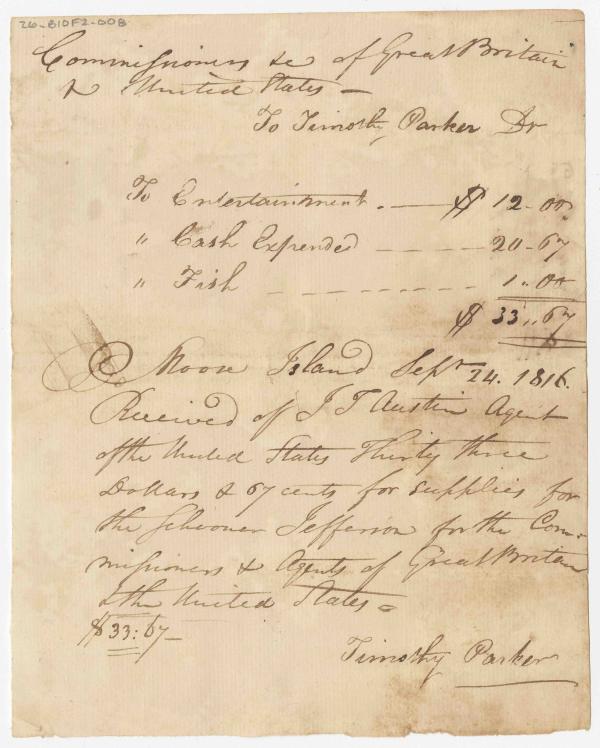 26-810F2-008
Commissioners &c of Great Britain
& United States -
To Timothy Parker Dr
To Entertainment . - $ 12-00
" Cash Expended - - - 20-67
" Fish - - - - - 1"00
$ 33"67
Moose Island Sepr 24. 1816.
Received of J T Austin Agent
of the United States Thirty three
Dollars & 67 cents for supplies for
the Schooner Jefferson for the Com-
missioners & Agents of Great Britain
& the United States =
$33:67-
Timothy Parker